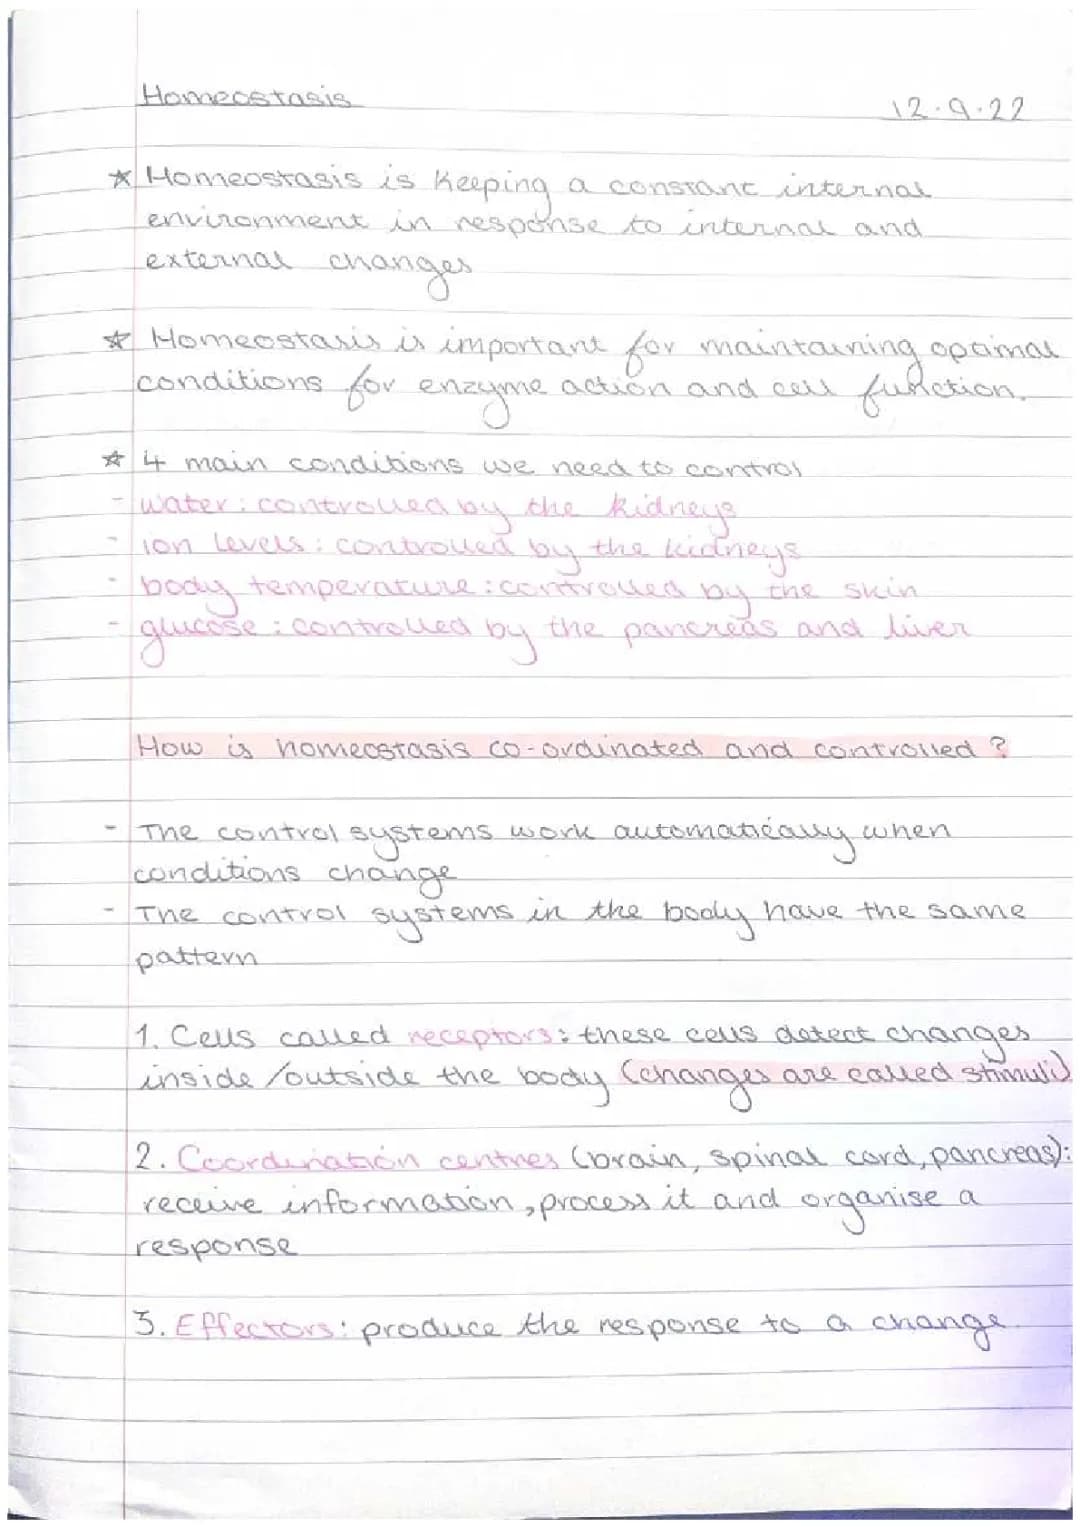 Homeostasis
12.9.22
☆ Homeostasis is keeping a constant internal
environment in response to internal and
external changes
☆ Homeostasis is important for maintaining optimal
conditions for enzyme action and cell function.
☆ 4 main conditions we need to control
- water: controlled by the kidneys
- ion levels: controlled by the kidneys
- body temperature: controlled by the skin
- glucose: controlled by the pancreas and liver
How is homeostasis co-ordinated and controlled?
- The control systems work automatically when
conditions change
- The control systems in the body have the same
pattern
1. Cells called receptors: these cells detect changes
inside/outside the body (changes are called stimuli)
2. Coordination centres (brain, spinal cord, pancreas):
receive information, process it and organise a
response
3. Effectors: produce the response to a change.